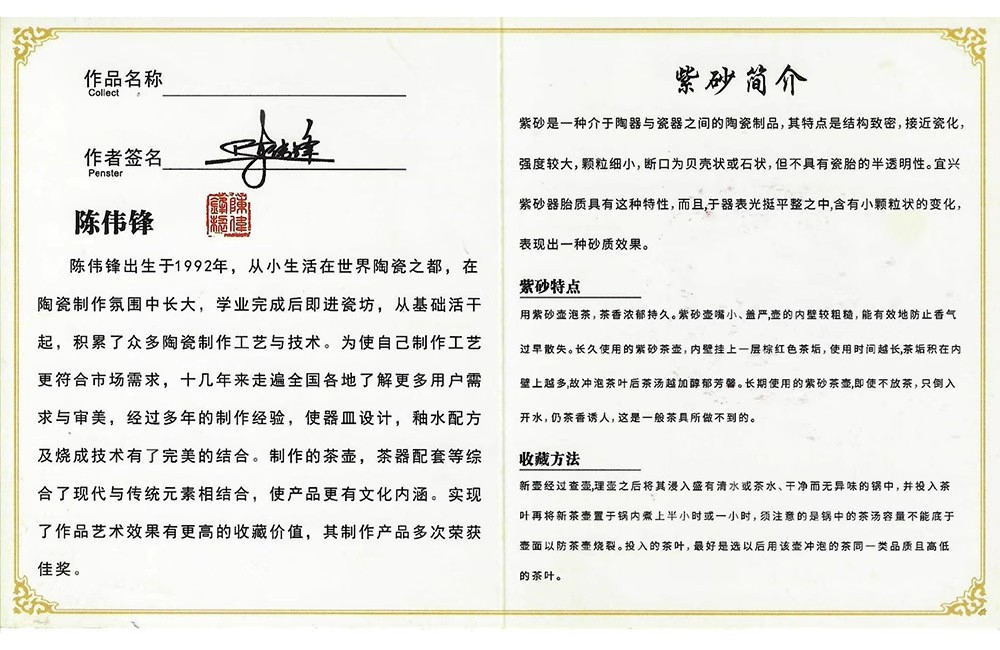 作品名称
Collect
作者签名
Penster
陈伟锋
陈伟锋出生于1992年，从小生活在世界陶瓷之都，在
陶瓷制作氛围中长大，学业完成后即进瓷坊，从基础活干
起，积累了众多陶瓷制作工艺与技术。为使自己制作工艺
更符合市场需求，十几年来走遍全国各地了解更多用户需
求与审美，经过多年的制作经验，使器皿设计，釉水配方
及烧成技术有了完美的结合。制作的茶壶，茶器配套等综
合了现代与传统元素相结合，使产品更有文化内涵。实现
了作品艺术效果有更高的收藏价值，其制作产品多次荣获
佳奖。
紫砂简介
紫砂是一种介于陶器与瓷器之间的陶瓷制品，其特点是结构致密，接近瓷化，
强度较大，颗粒细小，断口为贝壳状或石状，但不具有瓷胎的半透明性。宜兴
紫砂器胎质具有这种特性，而且，于器表光挺平整之中，含有小颗粒状的变化，
表现出一种砂质效果。
紫砂特点
用紫砂壶泡茶，茶香浓郁持久。紫砂壶嘴小、盖严，壶的内壁较粗糙，能有效地防止香气
过早散失。长久使用的紫砂茶壶，内壁挂上一层棕红色茶垢，使用时间越长，茶垢积在内
壁上越多，故冲泡茶叶后茶汤越加醇郁芳馨。长期使用的紫砂茶壶，即使不放茶，只倒入
开水，仍茶香诱人，这是一般茶具所做不到的。
收藏方法
新壶经过查壶，理壶之后将其浸入盛有清水或茶水、干净而无异味的锅中，并投入茶
叶再将新茶壶置于锅内煮上半小时或一小时，须注意的是锅中的茶汤容量不能底于
壶面以防茶壶烧裂。投入的茶叶，最好是选以后用该壶冲泡的茶同一类品质且高低
的茶叶。